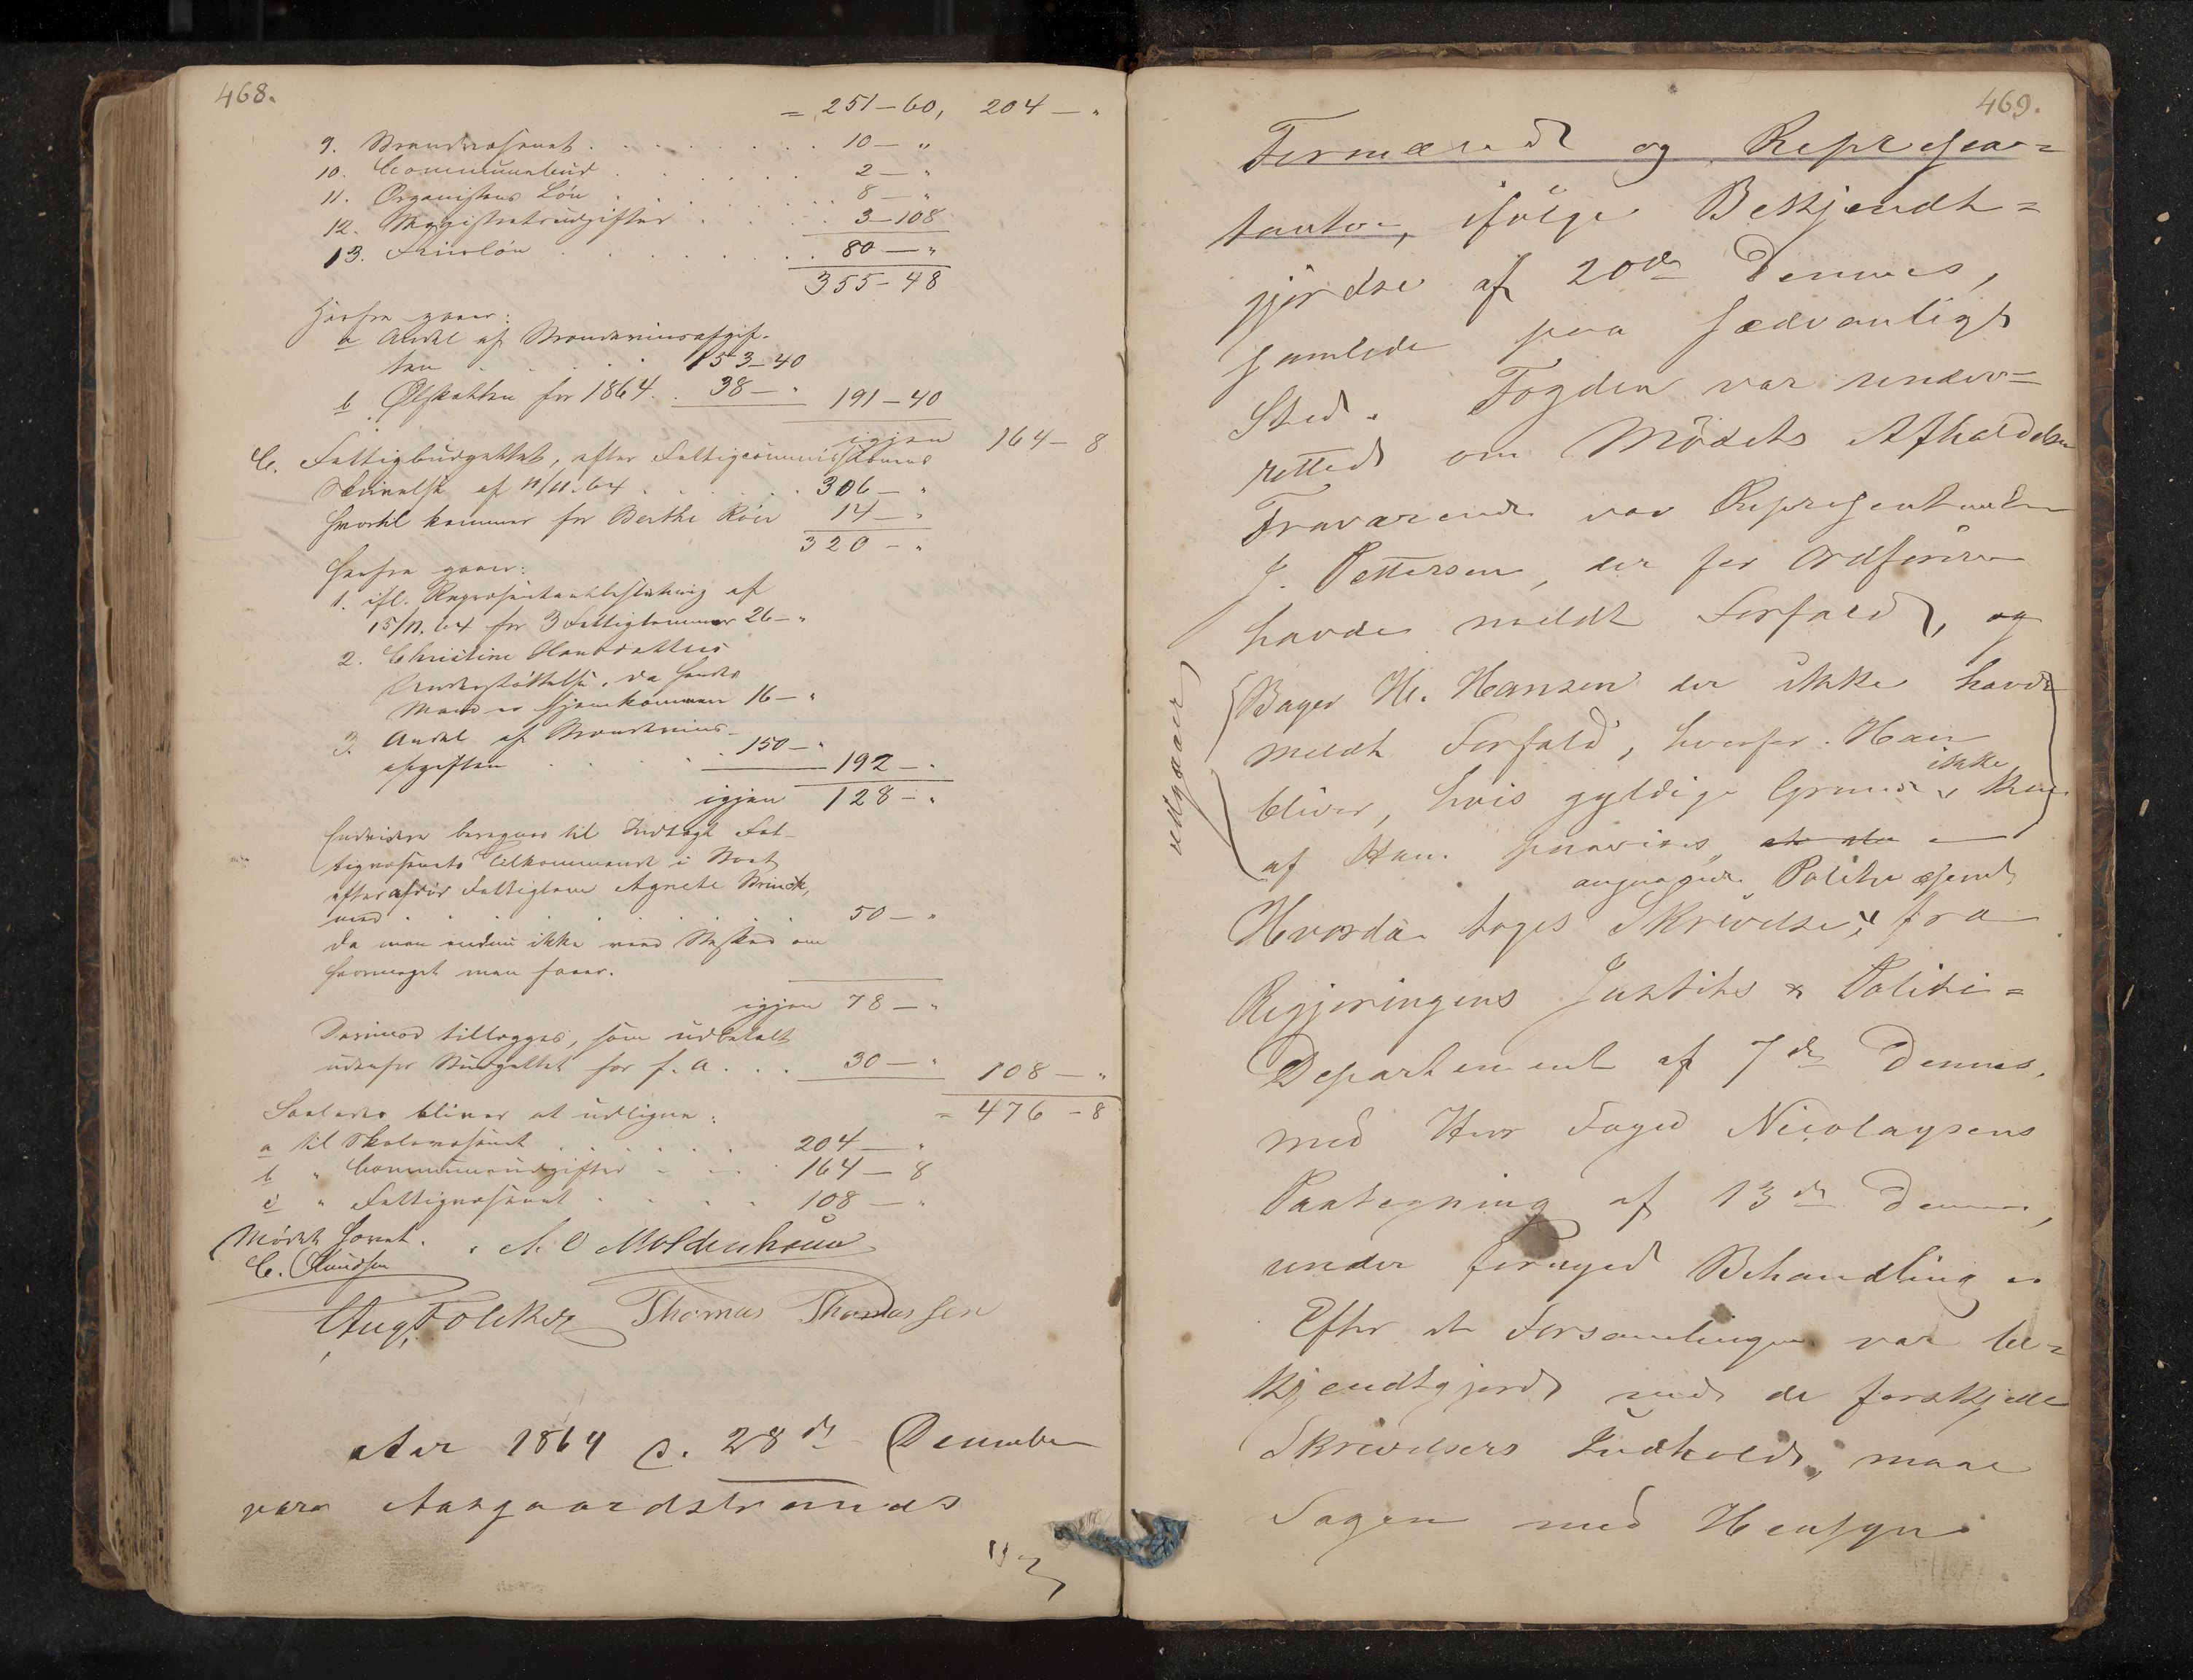 468.
= 251-60, 204 - "
9. Brandvæsenet . . . . . . . 10 - "
10. Communebud . . . . . . 2 - "
11. Organistens Løn . . . . . . 8 - "
12. Magistratsudgifter . . . 3-108
13. . . . . . . . 80 - "
355-48
Herfra gaaer:
a Andel af Brændeviinsafgif-
ten . . . . . 153-40
b Ølskatten for 1864. . 38 - " 191-40
igjen 164-8
C. Fattigbudgettet, efter Fattigcommissionens
Skrivelse af 11/11.64 . . . . . 306 - "
hvortil kommer for Berthe 14 - "
320 - "
Herfra gaaer:
1. ifl. Repræsentantbeslutning af
15/11.64 for 3 Fattiglemmer 26 - "
2. Christine Olausdatters
Understøttelse, da hendes
Mand er hjemkommen 16 - "
3. Andel af Brændeviins-
afgiften . . . . 150 - "
192 - "
igjen 128 - "
Endvidere beregnes til Indtægt Fat-
tigvæsenets Tilkommende i Boet
efter afdød Fattiglem Agnete Brinck,
med . . . . . . . 50 - "
da man endnu ikke veed Besked om
hvormeget man faaer.
igjen 78 - "
Derimod tillægges, som udbetalt
udenfor Budgettet for f. A. . . 30 - " 108 - "
Saaledes bliver at udligne: = 476-8
a til Skolevæsenet . . . . . . 204 - "
b " Communeudgifter . . . . 164-8
c " Fattigvæsenet . . . . . 108 - "
Mødet hævet.
C. Knudsen
A. O Moldenhauer
Aug. Fölcker Thomas Thomassen
Aar 1864 d. 28de December
vare Aasgaardstrands
469.
Formænd og Represen=
tanter, ifølge Bekjendt=
gjørdse af 20de Dennes,
samlede paa sædvanligt
Sted. Fogden var under=
rettet om Mødets Afholdelse
Fraværende var Representanten
J. Pettersen, der for Ordføreren
havde meldt Forfald, og
Bager H. Hansen der ikke havde
meldt Forfald, hvorfor Han
bliver, hvis gyldige Grunde ikke kan
af Ham paavises
udgaaer
angaaende Politivæsenet
Hvorda toges Skrivelse, fra
Regjeringens Justits & Politi=
Departement af 7de Dennes,
med Herr Foged Nicolaysens
Paategning af 13de Dennes,
under fornyed Behandling.
Efter at Forsamlingen var be=
kjendtgjord med de forskjelle
Skrivelsers Indhold, maae
Sagen med Hensyn